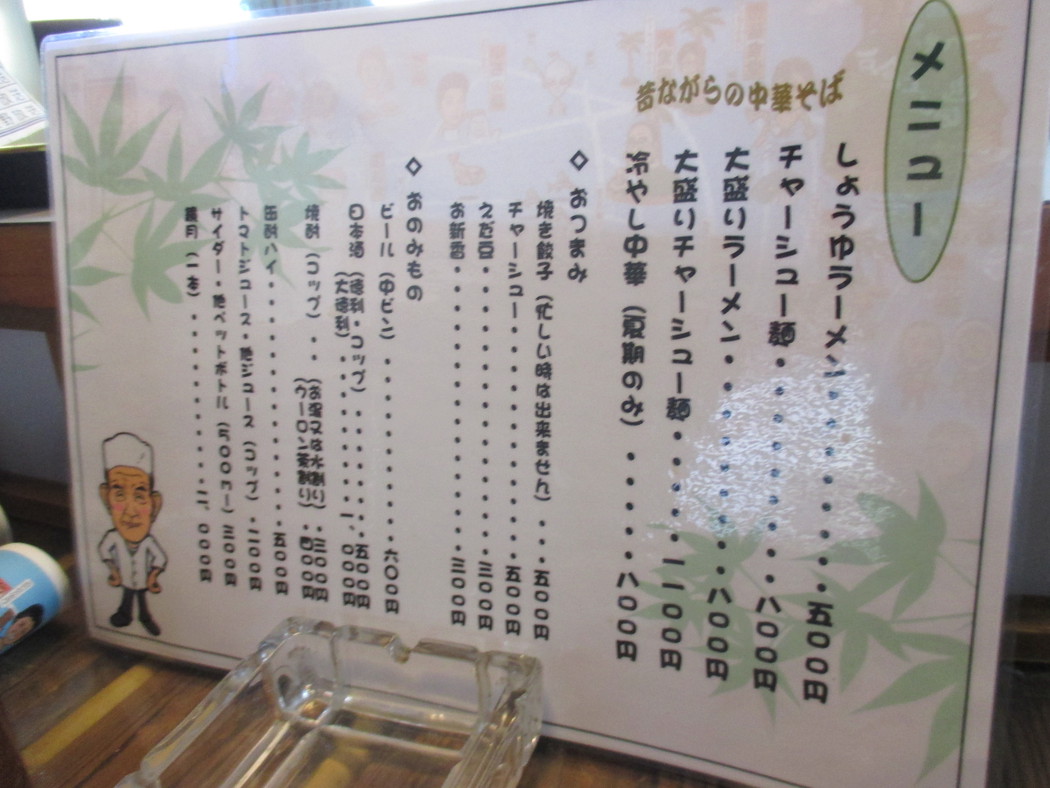 メニュー
昔ながらの中華そば
しょうゆラーメン・・・・・・・・五〇〇円
チャーシュー麺・・・・・・・・八〇〇円
大盛りラーメン・・・・・・・・八〇〇円
大盛りチャーシュー麺・・・・・一一〇〇円
冷やし中華（夏期のみ）・・・・・八〇〇円
◇おつまみ
焼き餃子（忙しい時は出来ません）・・・五〇〇円
チャーシュー・・・・・・・・・・・・・五〇〇円
えだ豆・・・・・・・・・・・・・・・三〇〇円
お新香・・・・・・・・・・・・・・・三〇〇円
◇おのみもの
ビール（中ビン）・・・・・・・・・・六〇〇円
日本酒（徳利・コップ）・・・・・・・・五〇〇円
（大徳利）・・・・・・・・一、〇〇〇円
焼酎（コップ）・・（お湯又は水割り）・三〇〇円
（ウーロン茶割り）・四〇〇円
缶酎ハイ・・・・・・・・・・・・・・五〇〇円
トマトジュース・他ジュース（コップ）・二〇〇円
サイダー・他ペットボトル（５００ｍｌ）三〇〇円
（一本）・・・・・・・・・・二、〇〇〇円